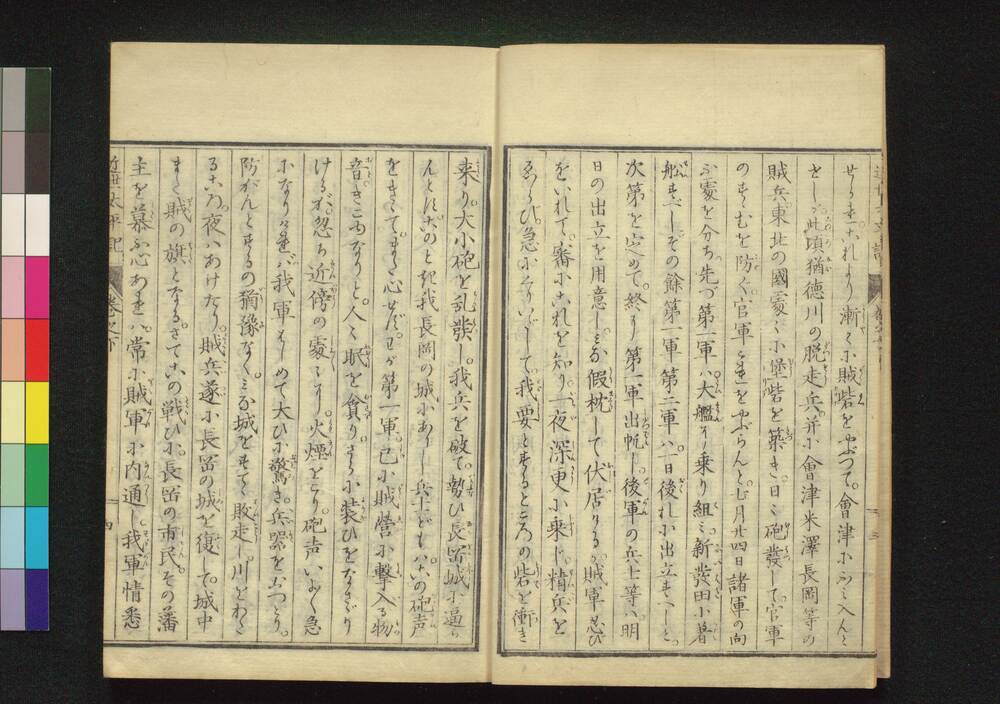 せり。夫これより漸々に賊砦をやぶつて。會津に入んと
す。此頃猶徳川の脱走兵。并に會津米澤長岡等の
賊兵。東北の國家々に堡砦を築き。日々砲發して。官軍
のすゝむを防ぐ。官軍これをやぶらんと。七月廿四日諸軍の向
ふ家を分ち。先づ第一軍ハ。大艦に乗り組ミ。新發田に着
船すべし。その餘第一軍第二軍ハ。一日後れに出立すべしと。
次第を定めて。終り第一軍出帆し。後軍の兵士等ハ。明
日の出立を用意し。ミな假枕して伏居りるが。賊軍忍び
をいれて。審にこれを知り。一夜深更に乗じ。精兵を
ゑらび。急にそりいでして。我要とするところの砦を衝き
来り。大小砲を乱發し。我兵を破て。勢ひ長岡城に逼ら
んとす。このとき我長岡の城にありし兵士どもハ。この砲声
をきゝて。まだ心せず。わが第一軍。已に賊營に撃入る物
音きこゆなりと。人々眠を貪り。さらに装ひをなさゞり
けるが。忽ち近傍の家々より。火煙をこり。砲声いよく急
になりければ。我軍はじめて大ひに驚き。兵器をおつとり。
防がんとするの猶豫なく。ミな城をすてゝ敗走し。川をわたる
ころ。夜ハあけたり。賊兵遂に長岡の城を復して。城中
また賊の旗となる。さてこの戦ひに。長岡の市民。その藩
主を慕ふ心あれバ。常に賊軍に内通し。我軍情悉
近世太平記
卷之下
四